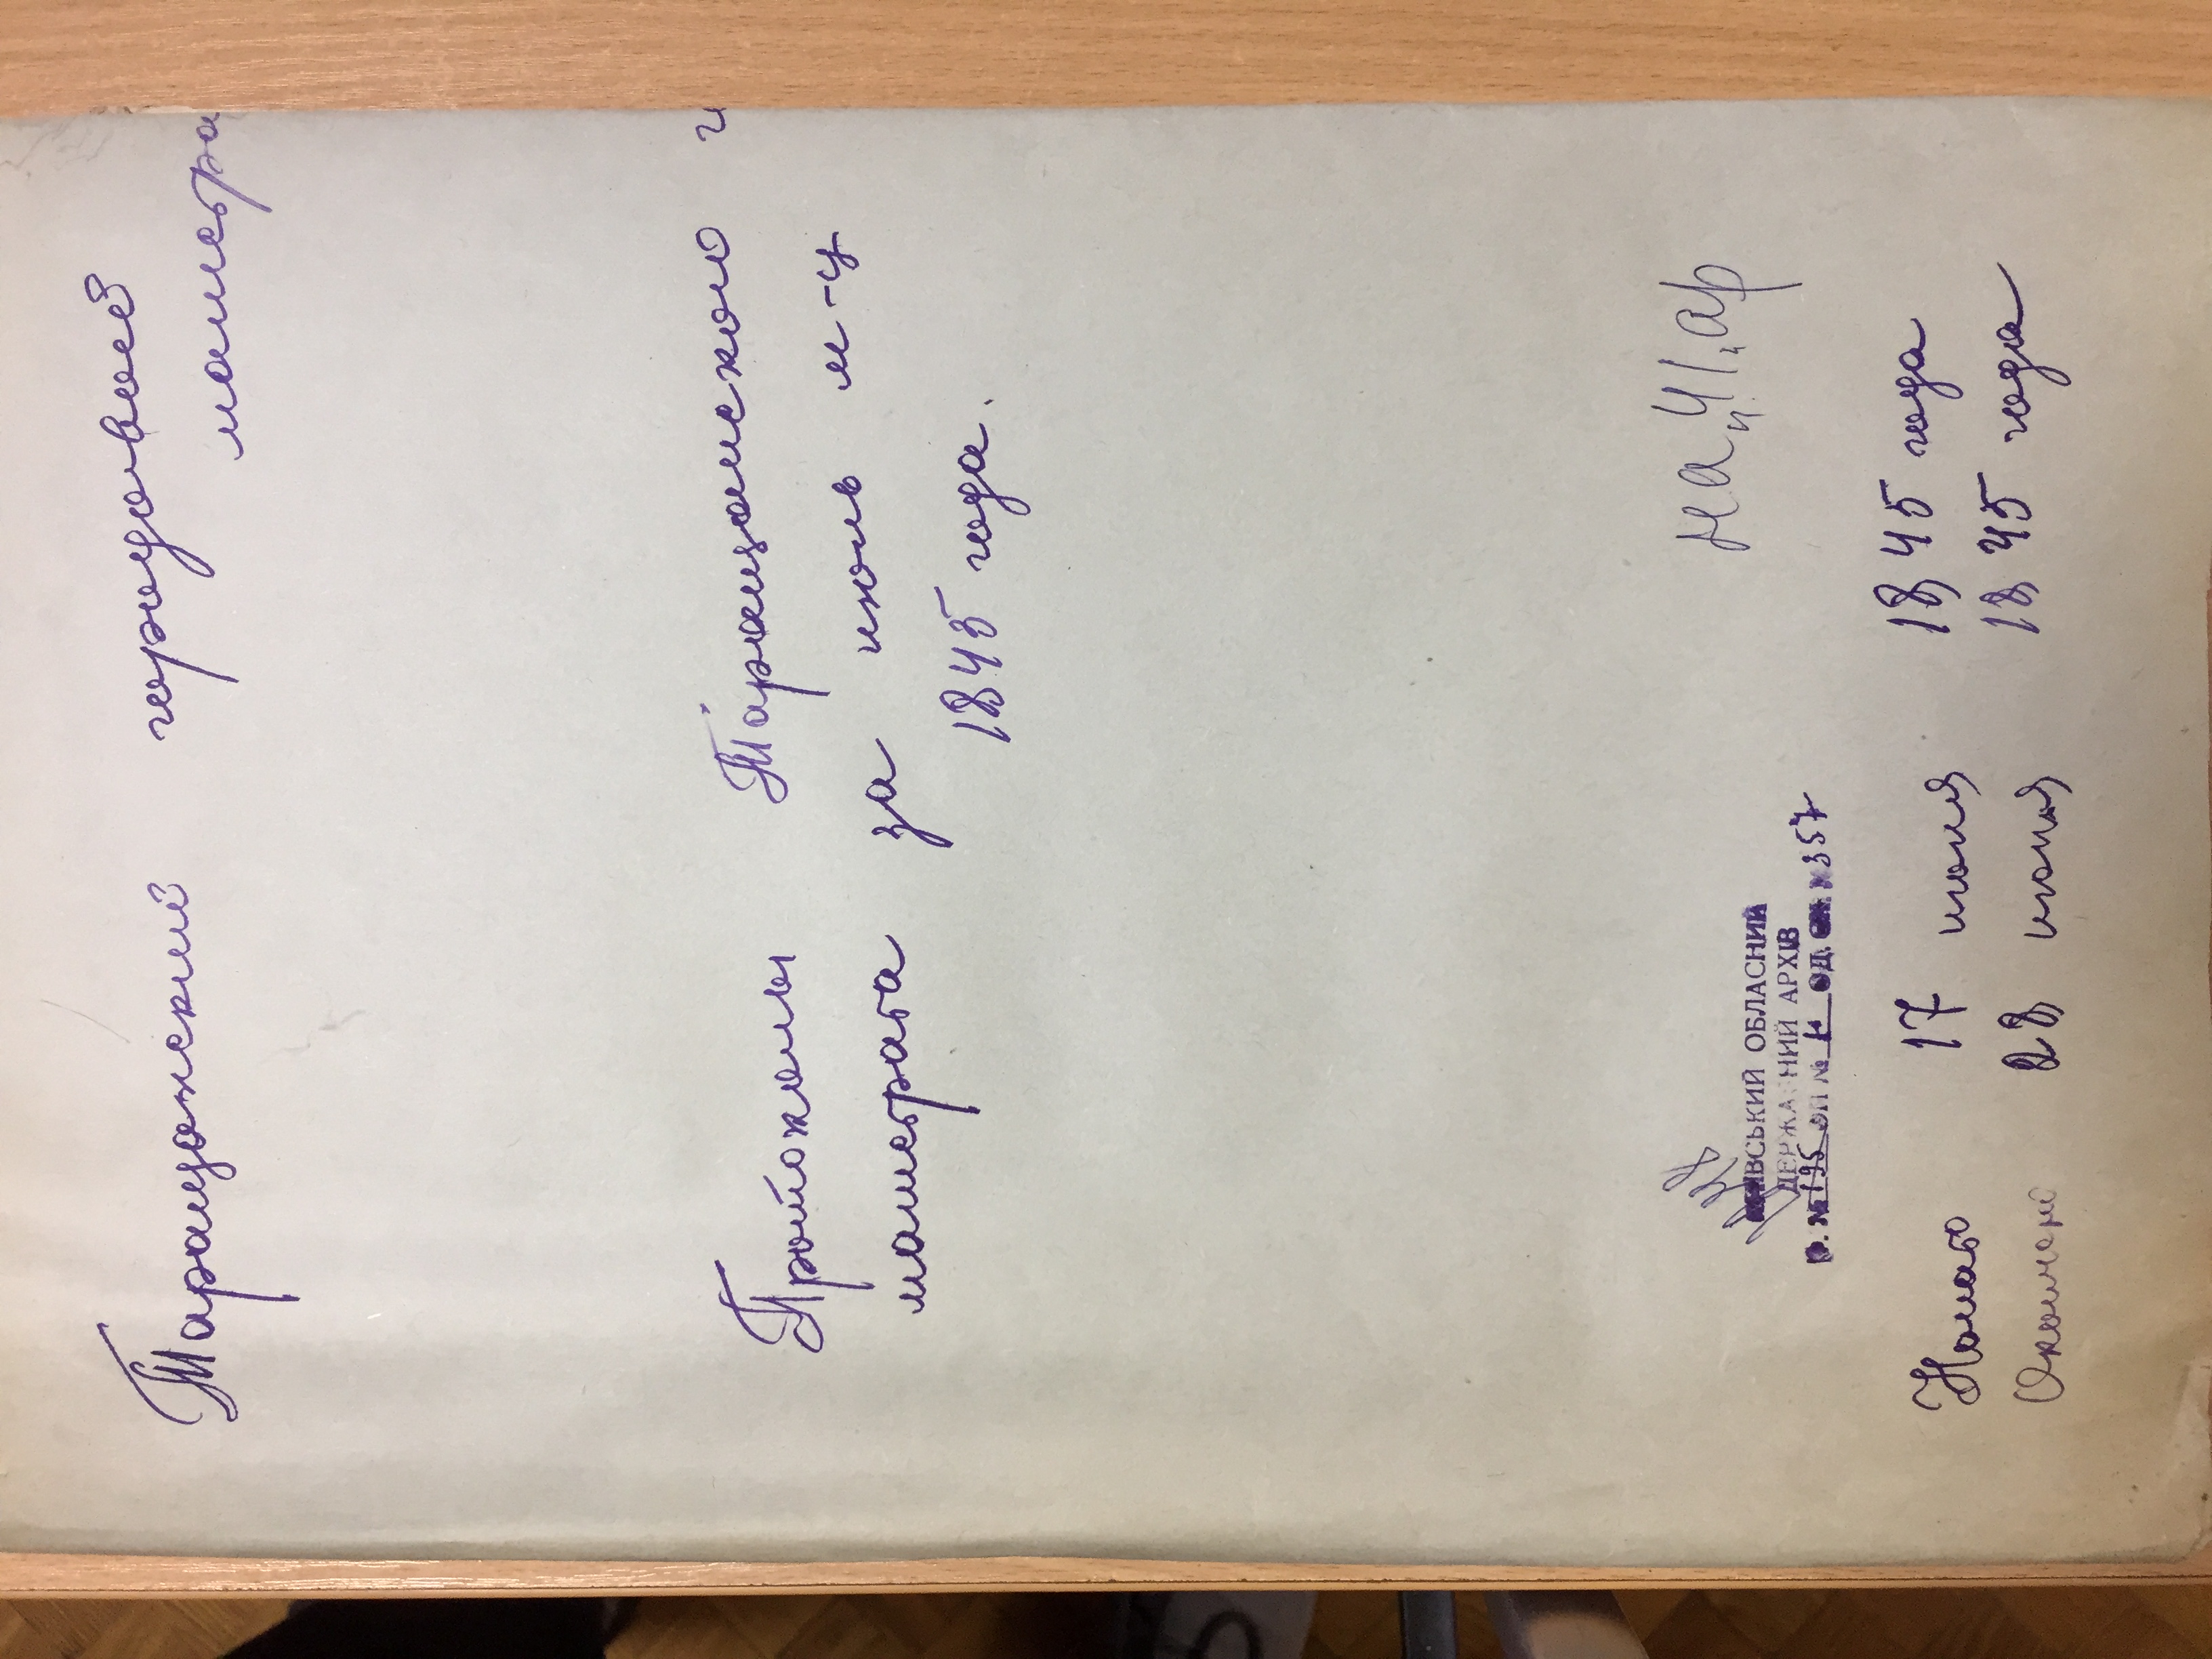 Таращанский городовой
магистра
Протоколы Таращанского г
магистрата за июль м-ц
1845 года.
на 41 ар
КИЇВСЬКИЙ ОБЛАСНИЙ
ДЕРЖАВНИЙ АРХІВ
Ф. № 195 оп № 1 од. зб. № 357
Начато 17 июля 1845 года
Окончено 28 июля 1845 года